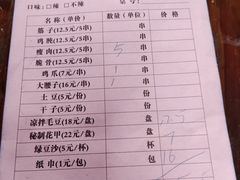 口味:□辣 □不辣
名称(单价) 数量(单位) 价格
筋子(12.5元/5串) 串
鸡胗(12.5元/5串) 串
瘦肉(12.5元/5串) 5 串
脆骨(12.5元/5串) 串
鸡爪(7元/串) 串
大腰子(16元/串) 1 串
土豆(5元/份) 份
干子(5元/份) 份
凉拌毛豆(18元/盘) 盘
秘制花甲(22元/盘) 盘
绿豆沙(5元/杯) 杯 7
纸巾(1元/包) 包 16